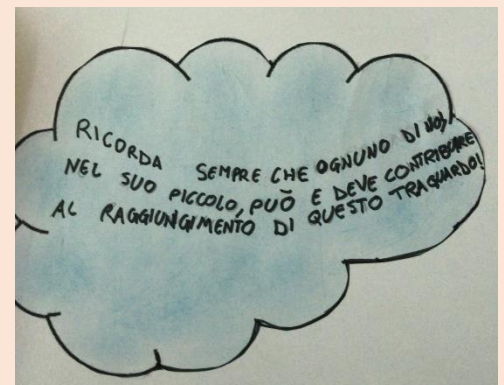 RICORDA SEMPRE CHE OGNUNO DI NOI,
NEL SUO PICCOLO, PUÒ E DEVE CONTRIBUIRE
AL RAGGIUNGIMENTO DI QUESTO TRAGUARDO!